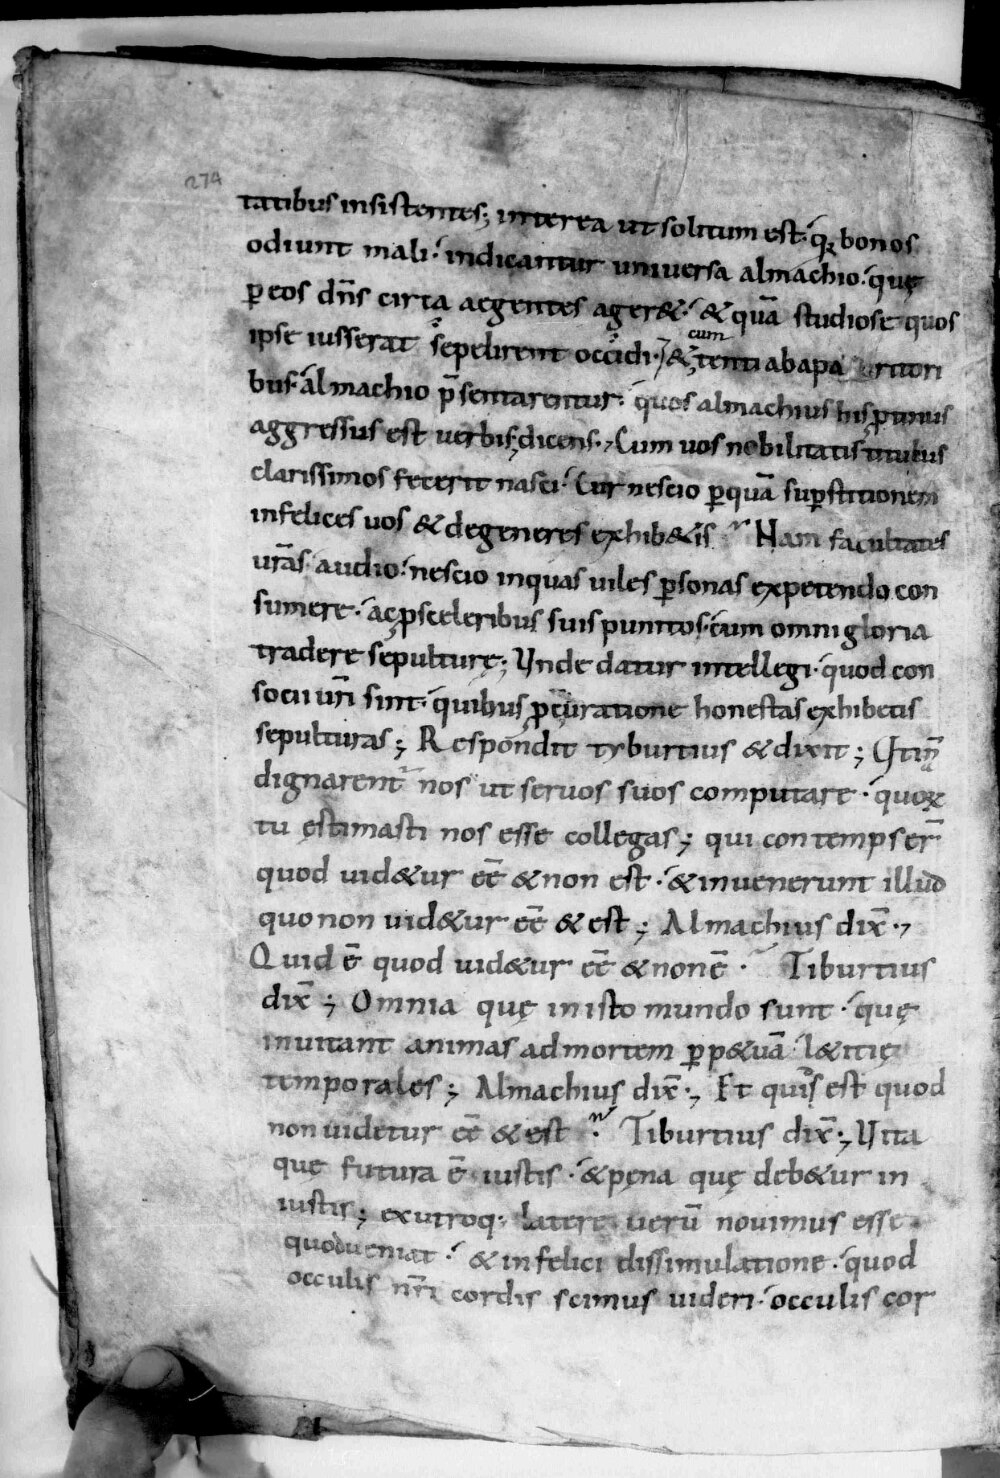 274
tatibus insistentes; interea ut solitum est· q̄ bonos
odiunt mali· indicantur universa almachio· quę
ꝑ eos dn̄s circa aegentes ager&· & quā studiose quos
ipse iusserat sepelirent occidi· cum
&tenti ab apparitori
bus· almachio p̄sentarentur· quos almachius his ꝓtinus
aggressus est verbis; dicens·, Cum vos nobilitatis titulus
clarissimos fecerit nasci· Cur nescio ꝑ quā suꝑstitionem
infelices vos & degeneres exhib&is· Nam facultates
urās· audio· nescio in quas viles ꝑsonas expetendo con
sumere· ac ꝓ sceleribus suis punitos· cum omni gloria
tradere sepulturę; Unde datur intellegi· quod con
socii ur̄i sint· quibus ꝓ curatione honestas exhibetis
sepulturas; Respondit tyburtius & dixit;
dignarent̄ nos ut servos suos computare· quoꝝ
tu ęstimasti nos esse collegas; qui contempser̄
quod vid&ur eē & non est· & invenerunt illud
quo non vid&ur eē & est; Almachius dix̄·,
Quid ē quod vid&ur eē & non ē· Tiburtius
dix̄; Omnia quę in isto mundo sunt· quę
invitant animas ad mortem ꝑp&uā· l&itię
temporales; Almachius dix̄·, Et quis est quod
non videtur eē & est· Tiburtius dix̄·, Vita
quę futura ē iustis· & pęna quę deb&ur in
iustis; ex utroq; latere verū novimus esse
quod veniat· & infelici dissimulatione· quod
occulis nr̄i cordis scimus videri· occulis cor